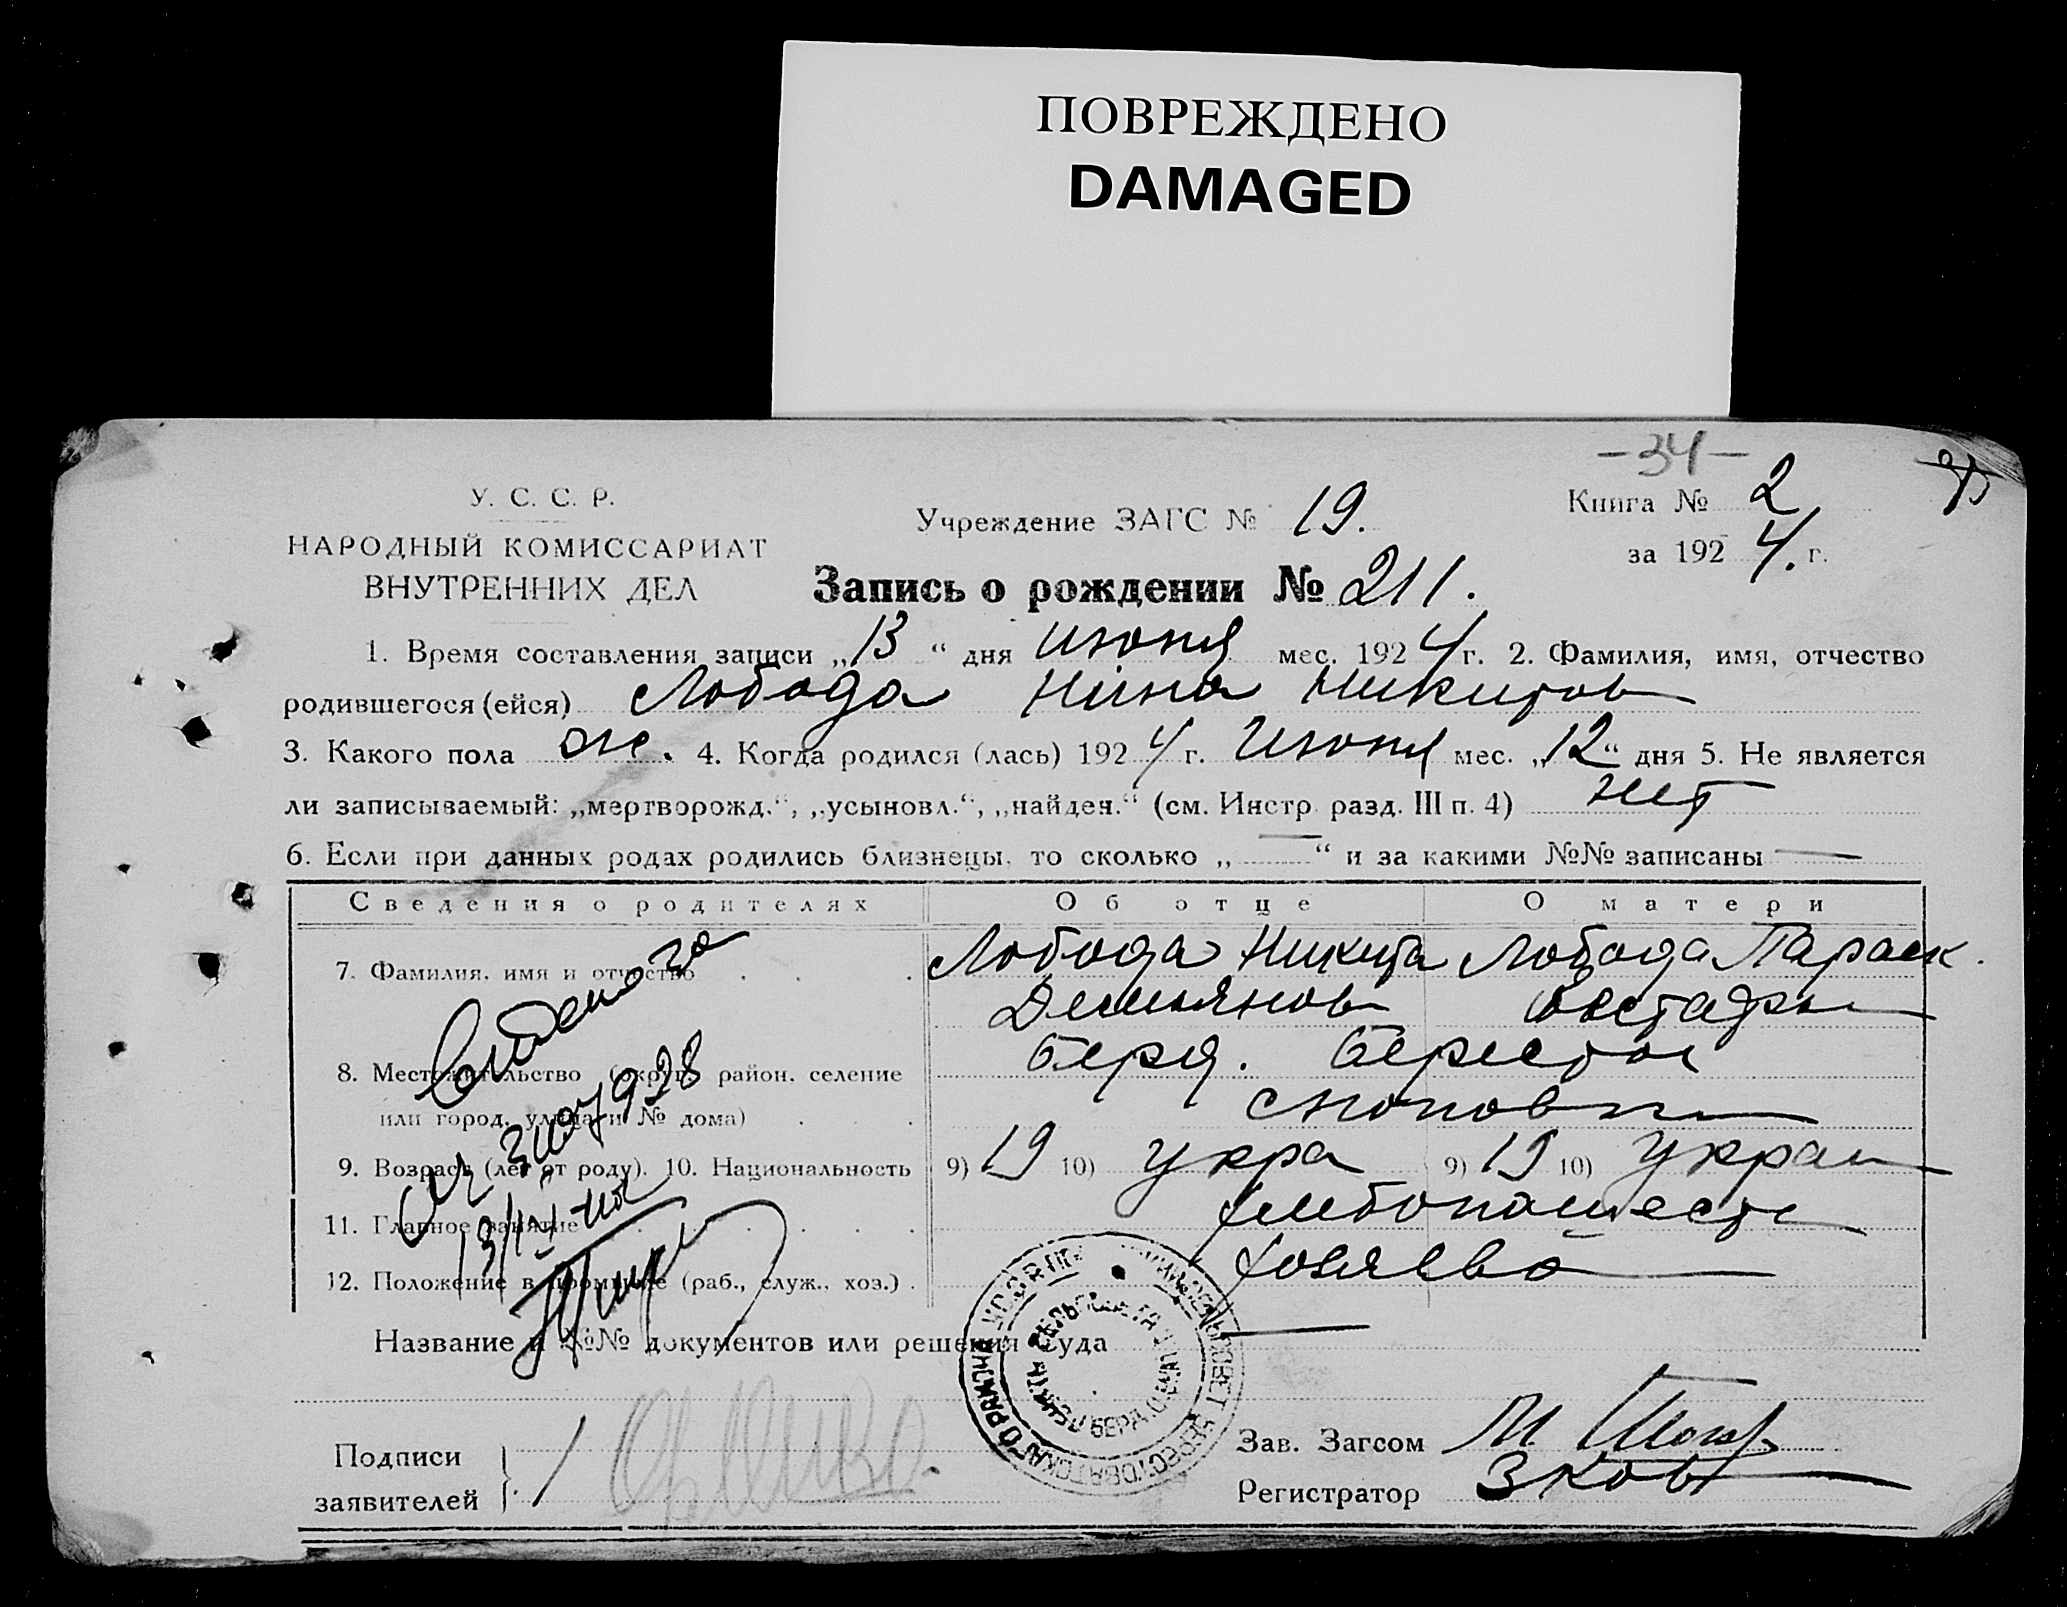 ПОВРЕЖДЕНО
DAMAGED
-34-
У. С. С. Р.
НАРОДНЫЙ КОМИССАРИАТ
ВНУТРЕННИХ ДЕЛ
Учреждение ЗАГС № 19.
Книга № 2
за 1924 г.
Запись о рождении № 211.
1. Время составления записи „13“ дня июня мес. 1924 г. 2. Фамилия, имя, отчество
родившегося (ейся) Лобода Нина Никитов
3. Какого пола ж. 4. Когда родился (лась) 1924 г. Июня мес. „12“ дня 5. Не является
ли записываемый: „мертворожд.“, „усыновл.“, „найден.“ (см. Инстр. разд. III п. 4) нет
6. Если при данных родах родились близнецы, то сколько „—“ и за какими №№ записаны —
Сведения о родителях Об отце О матери
7. Фамилия, имя и отчество . . . Лобода Никита Лобода Параск.
Демьянов Евстафь
8. Местожительство (округ, район, селение Берд. Берестов
или город, улица и № дома) . . .
9. Возраст (лет от роду). 10. Национальность 9) 19 10) Укра 9) 19 10) Украи
11. Главное занятие . . . . . . Хлебопашест
12. Положение в промысле (раб., служ., хоз.) . Хозяева
Название и №№ документов или решения суда —
Подписи
заявителей
Зав. Загсом М.
Регистратор Зков